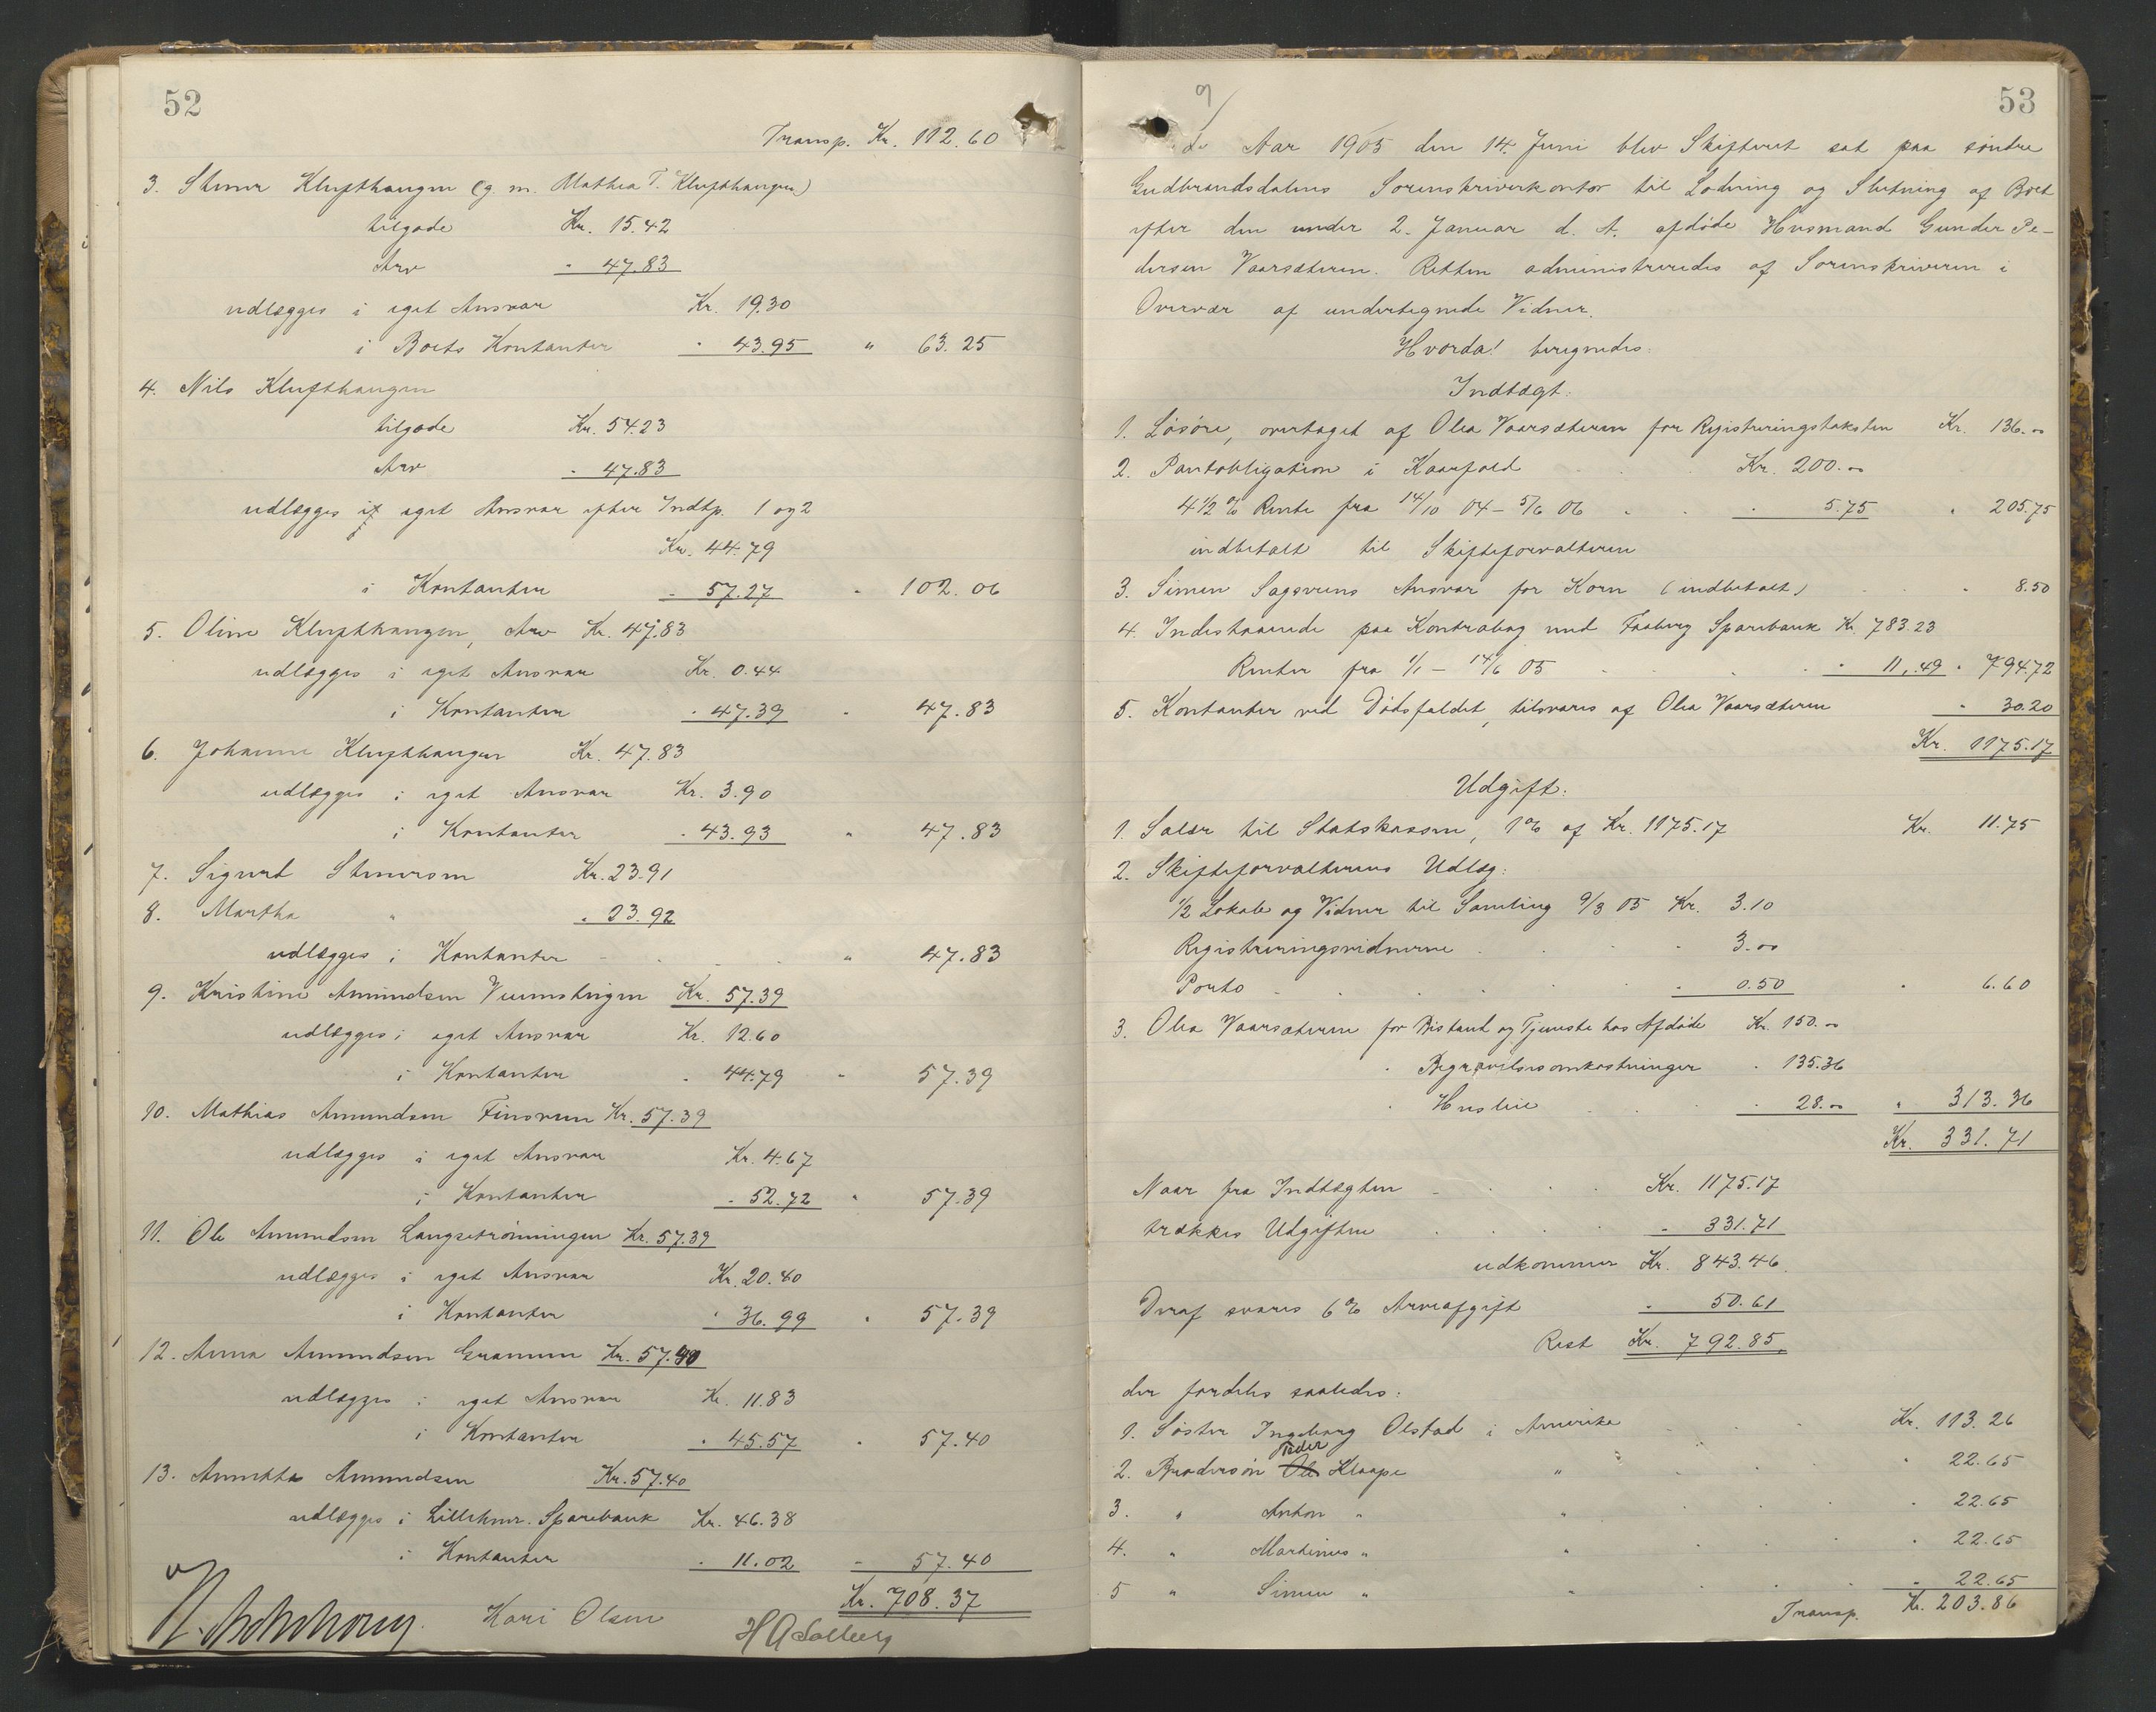 52
Transp. Kr. 112.60
3. Stener Klufthaugen (g. m. Mathea T. Klufthaugen)
tilgode Kr. 15.42
Arv " 47.83
udlægges i eget Ansvar Kr. 19.30
i Boets Kontanter " 43.95 " 63.25
4. Nils Klufthaugen
tilgode Kr. 54.23
Arv " 47.83
udlægges i eget Ansvar efter Indtp. 1 og 2
Kr. 44.79
i Kontanter " 57.27 " 102.06
5. Oline Klufthaugen, Arv Kr. 47.83
udlægges i eget Ansvar Kr. 0.44
i Kontanter " 47.39 " 47.83
6. Johanne Klufthaugen Kr. 47.83
udlægges i eget Ansvar Kr. 3.90
i Kontanter " 43.93 " 47.83
7. Sigurd Stenersen Kr. 23.91
8. Martha " " 23.92
udlægges i Kontanter " 47.83
9. Kristine Amundsen Kr. 57.39
udlægges i eget Ansvar Kr. 12.60
i Kontanter " 44.79 " 57.39
10. Mathias Amundsen Finsveen Kr. 57.39
udlægges i eget Ansvar Kr. 4.67
i Kontanter " 52.72 " 57.39
11. Ole Amundsen Langsetrønningen Kr. 57.39
udlægges i eget Ansvar Kr. 20.40
i Kontanter " 36.99 " 57.39
12. Anna Amundsen Kr. 57.40
udlægges i eget Ansvar Kr. 11.83
i Kontanter " 45.57 " 57.40
13. Annette Amundsen Kr. 57.40
udlægges i Lilleham. Sparebank Kr. 46.38
i Kontanter " 11.02 " 57.40
Kr. 708.37
Kari Olsen
H A Solberg
53
9/
Aar 1905 den 14. Juni blev Skifteret sat paa søndre
Gudbrandsdalens Sorenskriverkontor til Lodning og Slutning af Boet
efter den under 2. Januar d. A. afdøde Husmand Gunder Pe-
dersen Vaarsæteren. Retten administreredes af Sorenskriveren i
Overvær af undertegnede Vidner.
Hvorda! beregnedes:
Indtægt:
1. Løsøre, overtaget af Olea Vaarsæteren for Registreringstaksten Kr. 136.00
2. Pantobligation i Kaarfald Kr. 200.00
4 1/2 % Rente fra 14/10 04 - 5/6 06 " 5.75 " 205.75
indbetalt til Skifteforvalteren
3. Simen Sagsveens Ansvar for Korn (indbetalt) " 8.50
4. Indestaaende paa Kontrabog med Faaberg Sparebank Kr. 783.23
Renter fra 1/1 - 14/6 05 " 11.49 " 794.72
5. Kontanter ved Dødsfaldet, tilsvares af Olea Vaarsæteren " 30.20
Kr. 1175.17
Udgift:
1. Salær til Statskassen, 1 % af Kr. 1175.17 Kr. 11.75
2. Skifteforvalterens Udlæg:
1/2 Lokale og Vidner til Samling 9/3 05 Kr. 3.10
Registreringsvidnerne " 3.00
Porto " 0.50 " 6.60
3. Olea Vaarsæteren for Bistand og Tjeneste hos Afdøde Kr. 150.00
" Begravelsesomkostninger " 135.36
" Husleie " 28.00 " 313.36
Kr. 331.71
Naar fra Indtægten Kr. 1175.17
trækkes Udgiften " 331.71
udkommer Kr. 843.46
Deraf svares 6 % Arveafgift " 50.61
Rest Kr. 792.85
der fordeles saaledes:
1. Søster Ingeborg Olstad i Amerika Kr. 113.26
2. Brodersøn Peder Klaape " " 22.65
3. " Anton " " " 22.65
4. " Martinus " " " 22.65
5 " Simen " " " 22.65
Transp. Kr. 203.86